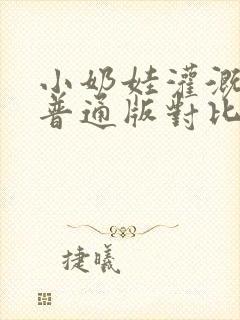 小奶娃灌溉
普通版對比
捷曦